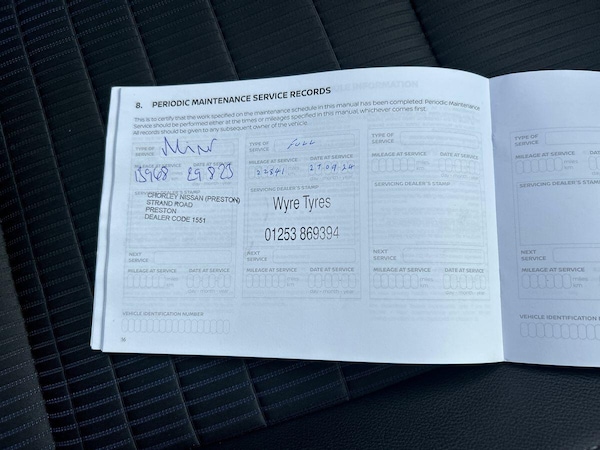 8. PERIODIC MAINTENANCE SERVICE RECORDS
This is to certify that the work specified on the maintenance schedule in this manual has been completed. Periodic Maintenance
Service should be performed either at the times or mileages specified in this manual, whichever comes first.
All records should be given to any subsequent owner of the vehicle.
TYPE OF SERVICE
MILEAGE AT SERVICE DATE AT SERVICE
13968 29 8 23
SERVICING DEALER'S STAMP
CHORLEY NISSAN (PRESTON)
STRAND ROAD
PRESTON
DEALER CODE 1551
NEXT SERVICE
MILEAGE AT SERVICE DATE AT SERVICE
VEHICLE IDENTIFICATION NUMBER
TYPE OF SERVICE FULL
MILEAGE AT SERVICE DATE AT SERVICE
22841 27 09 24
SERVICING DEALER'S STAMP
Wyre Tyres
01253 869394
NEXT SERVICE
MILEAGE AT SERVICE DATE AT SERVICE
TYPE OF SERVICE
MILEAGE AT SERVICE DATE AT SERVICE
SERVICING DEALER'S STAMP
NEXT SERVICE
MILEAGE AT SERVICE DATE AT SERVICE
TYPE OF SERVICE
MILEAGE AT SERVICE
SERVICING DEALER'S STAMP
NEXT SERVICE
MILEAGE AT SERVICE
VEHICLE IDENTIFICATION